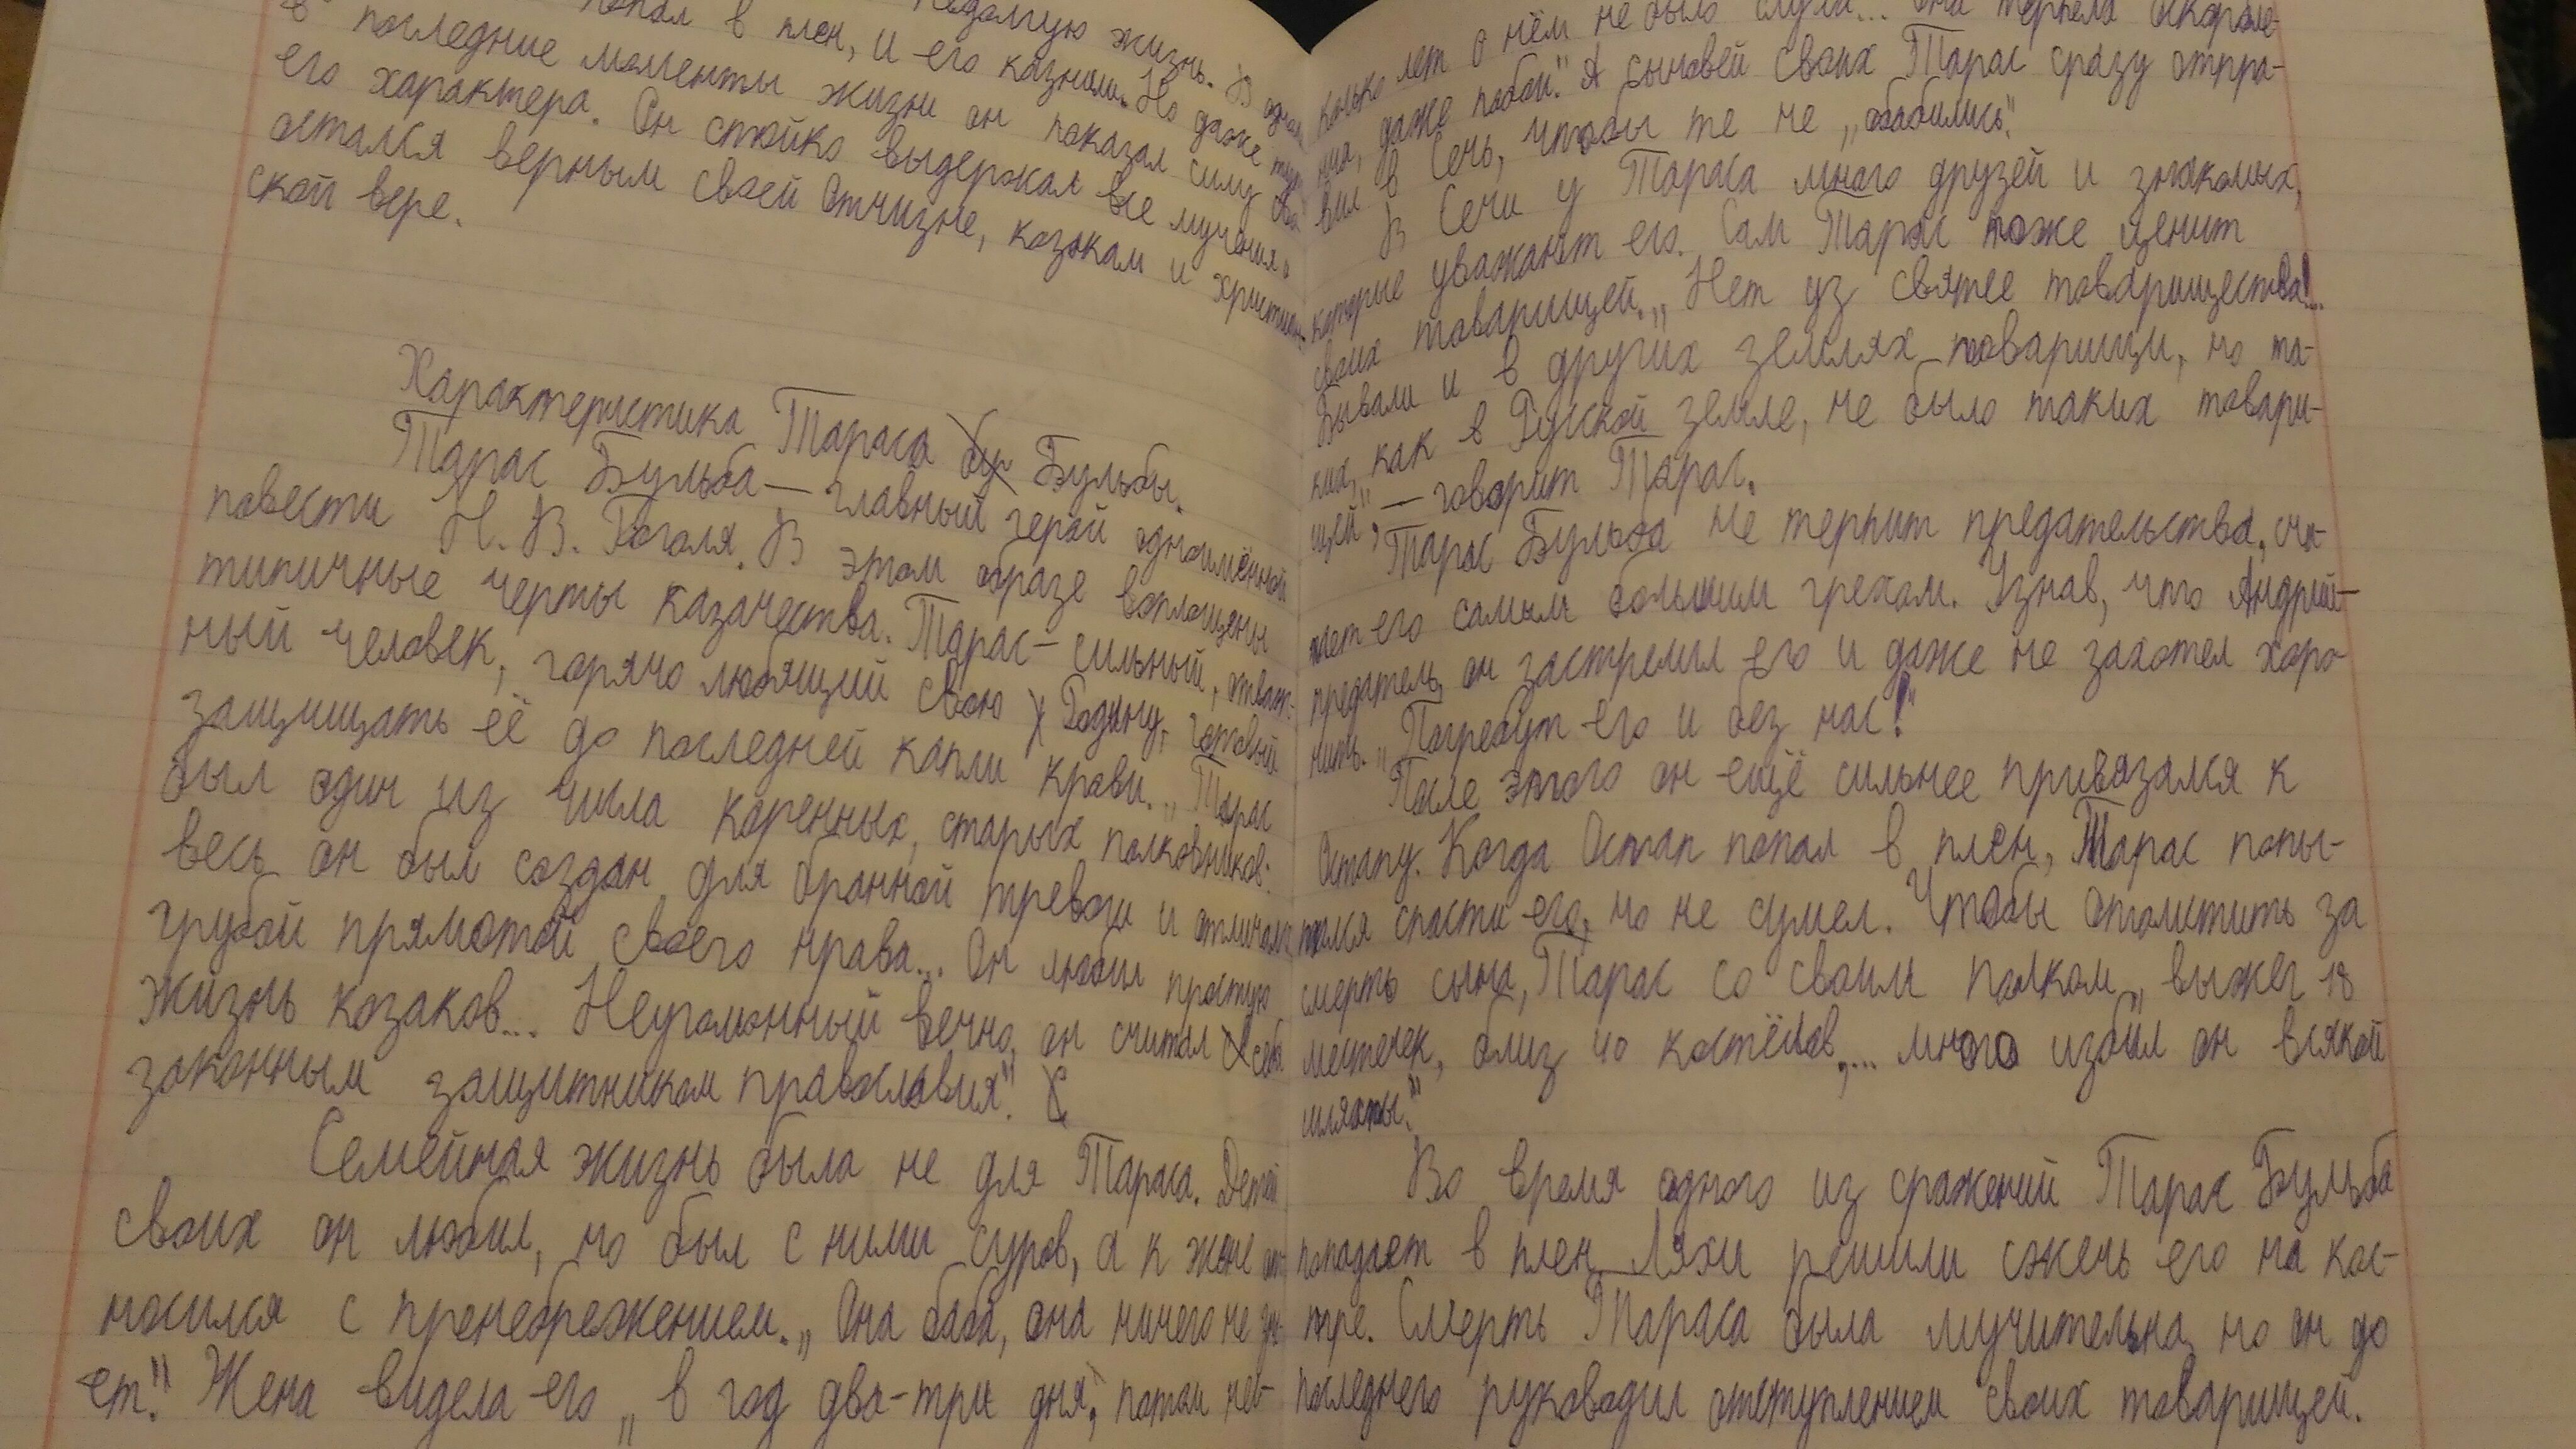 недолгую жизнь. В одном
попал в плен, и его казнили. Но даже тут
в последние моменты жизни он показал силу сво
его характера. Он стойко выдержал все мучения,
остался верным своей Отчизне, казакам и христиан-
ской вере.
Характеристика Тараса Бульбы.
Тарас Бульба — главный герой одноимённой
повести Н. В. Гоголя. В этом образе воплощены
типичные черты казачества. Тарас - сильный, отваж-
ный человек, горячо любящий свою Родину, готовый
защищать её до последней капли крови. „Тарас
был один из числа коренных, старых полковников:
весь он был создан для бранной тревоги и отличался
грубой прямотой своего нрава... Он любил простую
жизнь козаков... Неугомонный вечно, он считал себя
законным защитником православия".
Семейная жизнь была не для Тараса. Детей
своих он любил, но был с ними суров, а к жене от-
носился с пренебрежением. „Она баба, она ничего не зна-
ет." Жена видела его „в год два-три дня, потом нес-
колько лет о нём не было слуха... Она терпела оскорбле-
ния, даже побои". А сыновей своих Тарас сразу отпра-
вил в Сечь, чтобы те не „обабились".
В Сечи у Тараса много друзей и знакомых,
которые уважают его. Сам Тарас тоже ценит
своих товарищей. „Нет уз святее товарищества!...
Бывали и в других землях товарищи, но та-
ких, как в Русской земле, не было таких товари-
щей", — говорит Тарас.
Тарас Бульба не терпит предательства, счи-
тает его самым большим грехом. Узнав, что Андрий -
предатель, он застрелил его и даже не захотел хоро-
нить. „Погребут его и без нас!"
После этого он ещё сильнее привязался к
Остапу. Когда Остап попал в плен, Тарас попы-
тался спасти его, но не сумел. Чтобы отомстить за
смерть сына, Тарас со своим полком „выжег 18
местечек, близ 40 костёлов,... много избил он всякой
шляхты."
Во время одного из сражений Тарас Бульба
попадает в плен. Ляхи решили сжечь его на кос-
тре. Смерть Тараса была мучительна, но он до
последнего руководил отступлением своих товарищей.